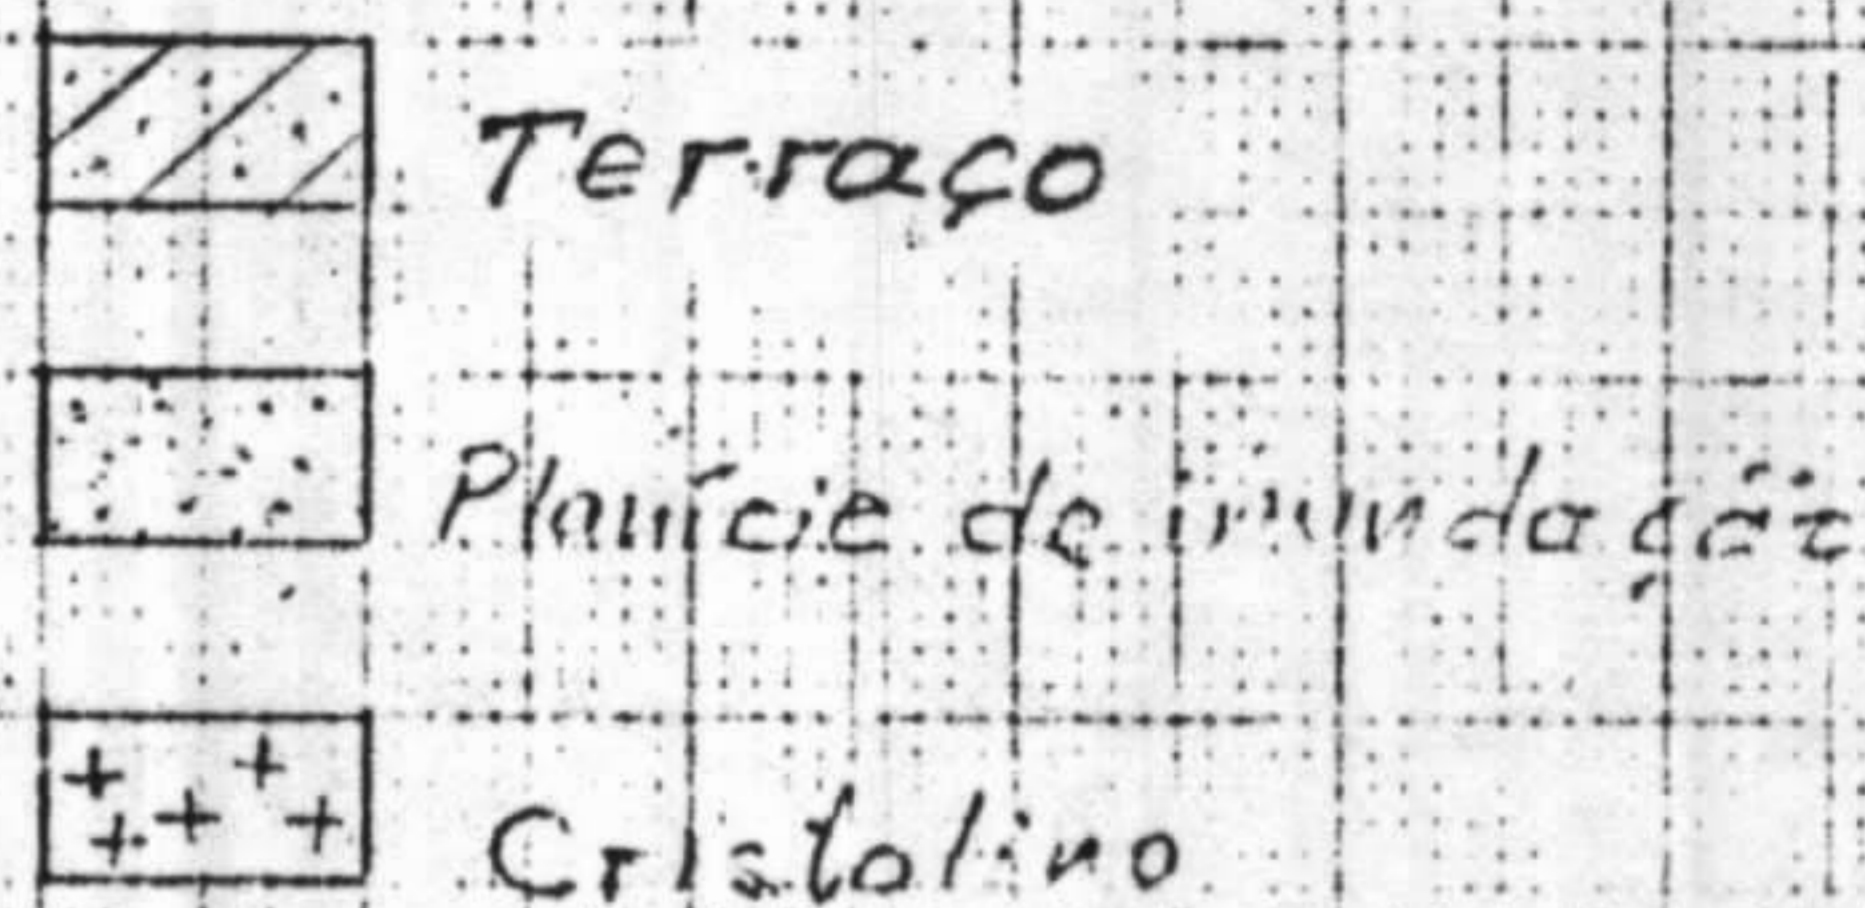 Terraço
Planície de inundação
Cristalino